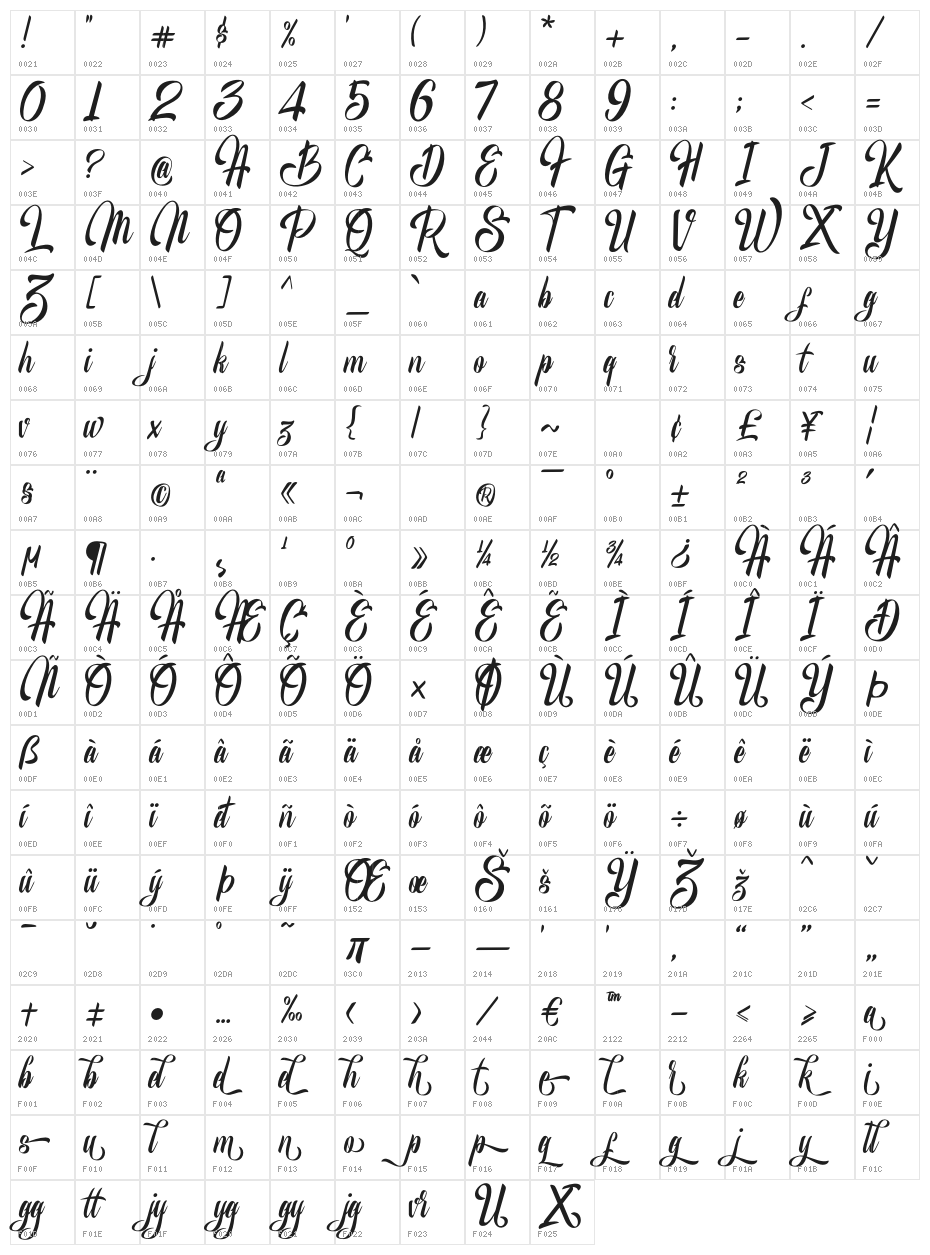 ! " # $ % ' ( ) * + , - . /
0021 0022 0023 0024 0025 0027 0028 0029 002A 002B 002C 002D 002E 002F
0 1 2 3 4 5 6 7 8 9 : ; < =
0030 0031 0032 0033 0034 0035 0036 0037 0038 0039 003A 003B 003C 003D
> ? @ A B C D E F G H I J K
003E 003F 0040 0041 0042 0043 0044 0045 0046 0047 0048 0049 004A 004B
L M N O P Q R S T U V W X Y
004C 004D 004E 004F 0050 0051 0052 0053 0054 0055 0056 0057 0058 0059
Z [ \ ] ^ _ ` a b c d e f g
005A 005B 005C 005D 005E 005F 0060 0061 0062 0063 0064 0065 0066 0067
h i j k l m n o p q r s t u
0068 0069 006A 006B 006C 006D 006E 006F 0070 0071 0072 0073 0074 0075
v w x y z { | } ~ ¢ £ ¥ ¦
0076 0077 0078 0079 007A 007B 007C 007D 007E 00A0 00A2 00A3 00A5 00A6
§ ¨ © ª « ¬ ® ¯ ° ± ² ³ ´
00A7 00A8 00A9 00AA 00AB 00AC 00AD 00AE 00AF 00B0 00B1 00B2 00B3 00B4
µ ¶ · ¸ ¹ º » ¼ ½ ¾ ¿ À Á Â
00B5 00B6 00B7 00B8 00B9 00BA 00BB 00BC 00BD 00BE 00BF 00C0 00C1 00C2
Ã Ä Å Æ Ç È É Ê Ë Ì Í Î Ï Ð
00C3 00C4 00C5 00C6 00C7 00C8 00C9 00CA 00CB 00CC 00CD 00CE 00CF 00D0
Ñ Ò Ó Ô Õ Ö × Ø Ù Ú Û Ü Ý Þ
00D1 00D2 00D3 00D4 00D5 00D6 00D7 00D8 00D9 00DA 00DB 00DC 00DD 00DE
ß à á â ã ä å æ ç è é ê ë ì
00DF 00E0 00E1 00E2 00E3 00E4 00E5 00E6 00E7 00E8 00E9 00EA 00EB 00EC
í î ï đ ñ ò ó ô õ ö ÷ ø ù ú
00ED 00EE 00EF 00F0 00F1 00F2 00F3 00F4 00F5 00F6 00F7 00F8 00F9 00FA
û ü ý þ ÿ Œ œ Š š Ÿ Ž ž ˆ ˇ
00FB 00FC 00FD 00FE 00FF 0152 0153 0160 0161 0178 017D 017E 02C6 02C7
ˉ ˘ ˙ ˚ ˜ π – — ' ' ‚ “ ” „
02C9 02D8 02D9 02DA 02DC 03C0 2013 2014 2018 2019 201A 201C 201D 201E
† ‡ • … ‰ ‹ › ⁄ € ™ − ≤ ≥ a
2020 2021 2022 2026 2030 2039 203A 2044 20AC 2122 2212 2264 2265 F000
b b d d d h h t e l r k k i
F001 F002 F003 F004 F005 F006 F007 F008 F009 F00A F00B F00C F00D F00E
s u l m n o p p q f g j y ll
F00F F010 F011 F012 F013 F014 F015 F016 F017 F018 F019 F01A F01B F01C
gg tt jy yg gy jg vr U X
F01D F01E F01F F020 F021 F022 F023 F024 F025